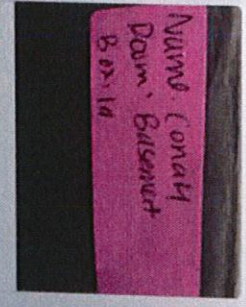 Name. Conaty
Room. Basement
Box. 10